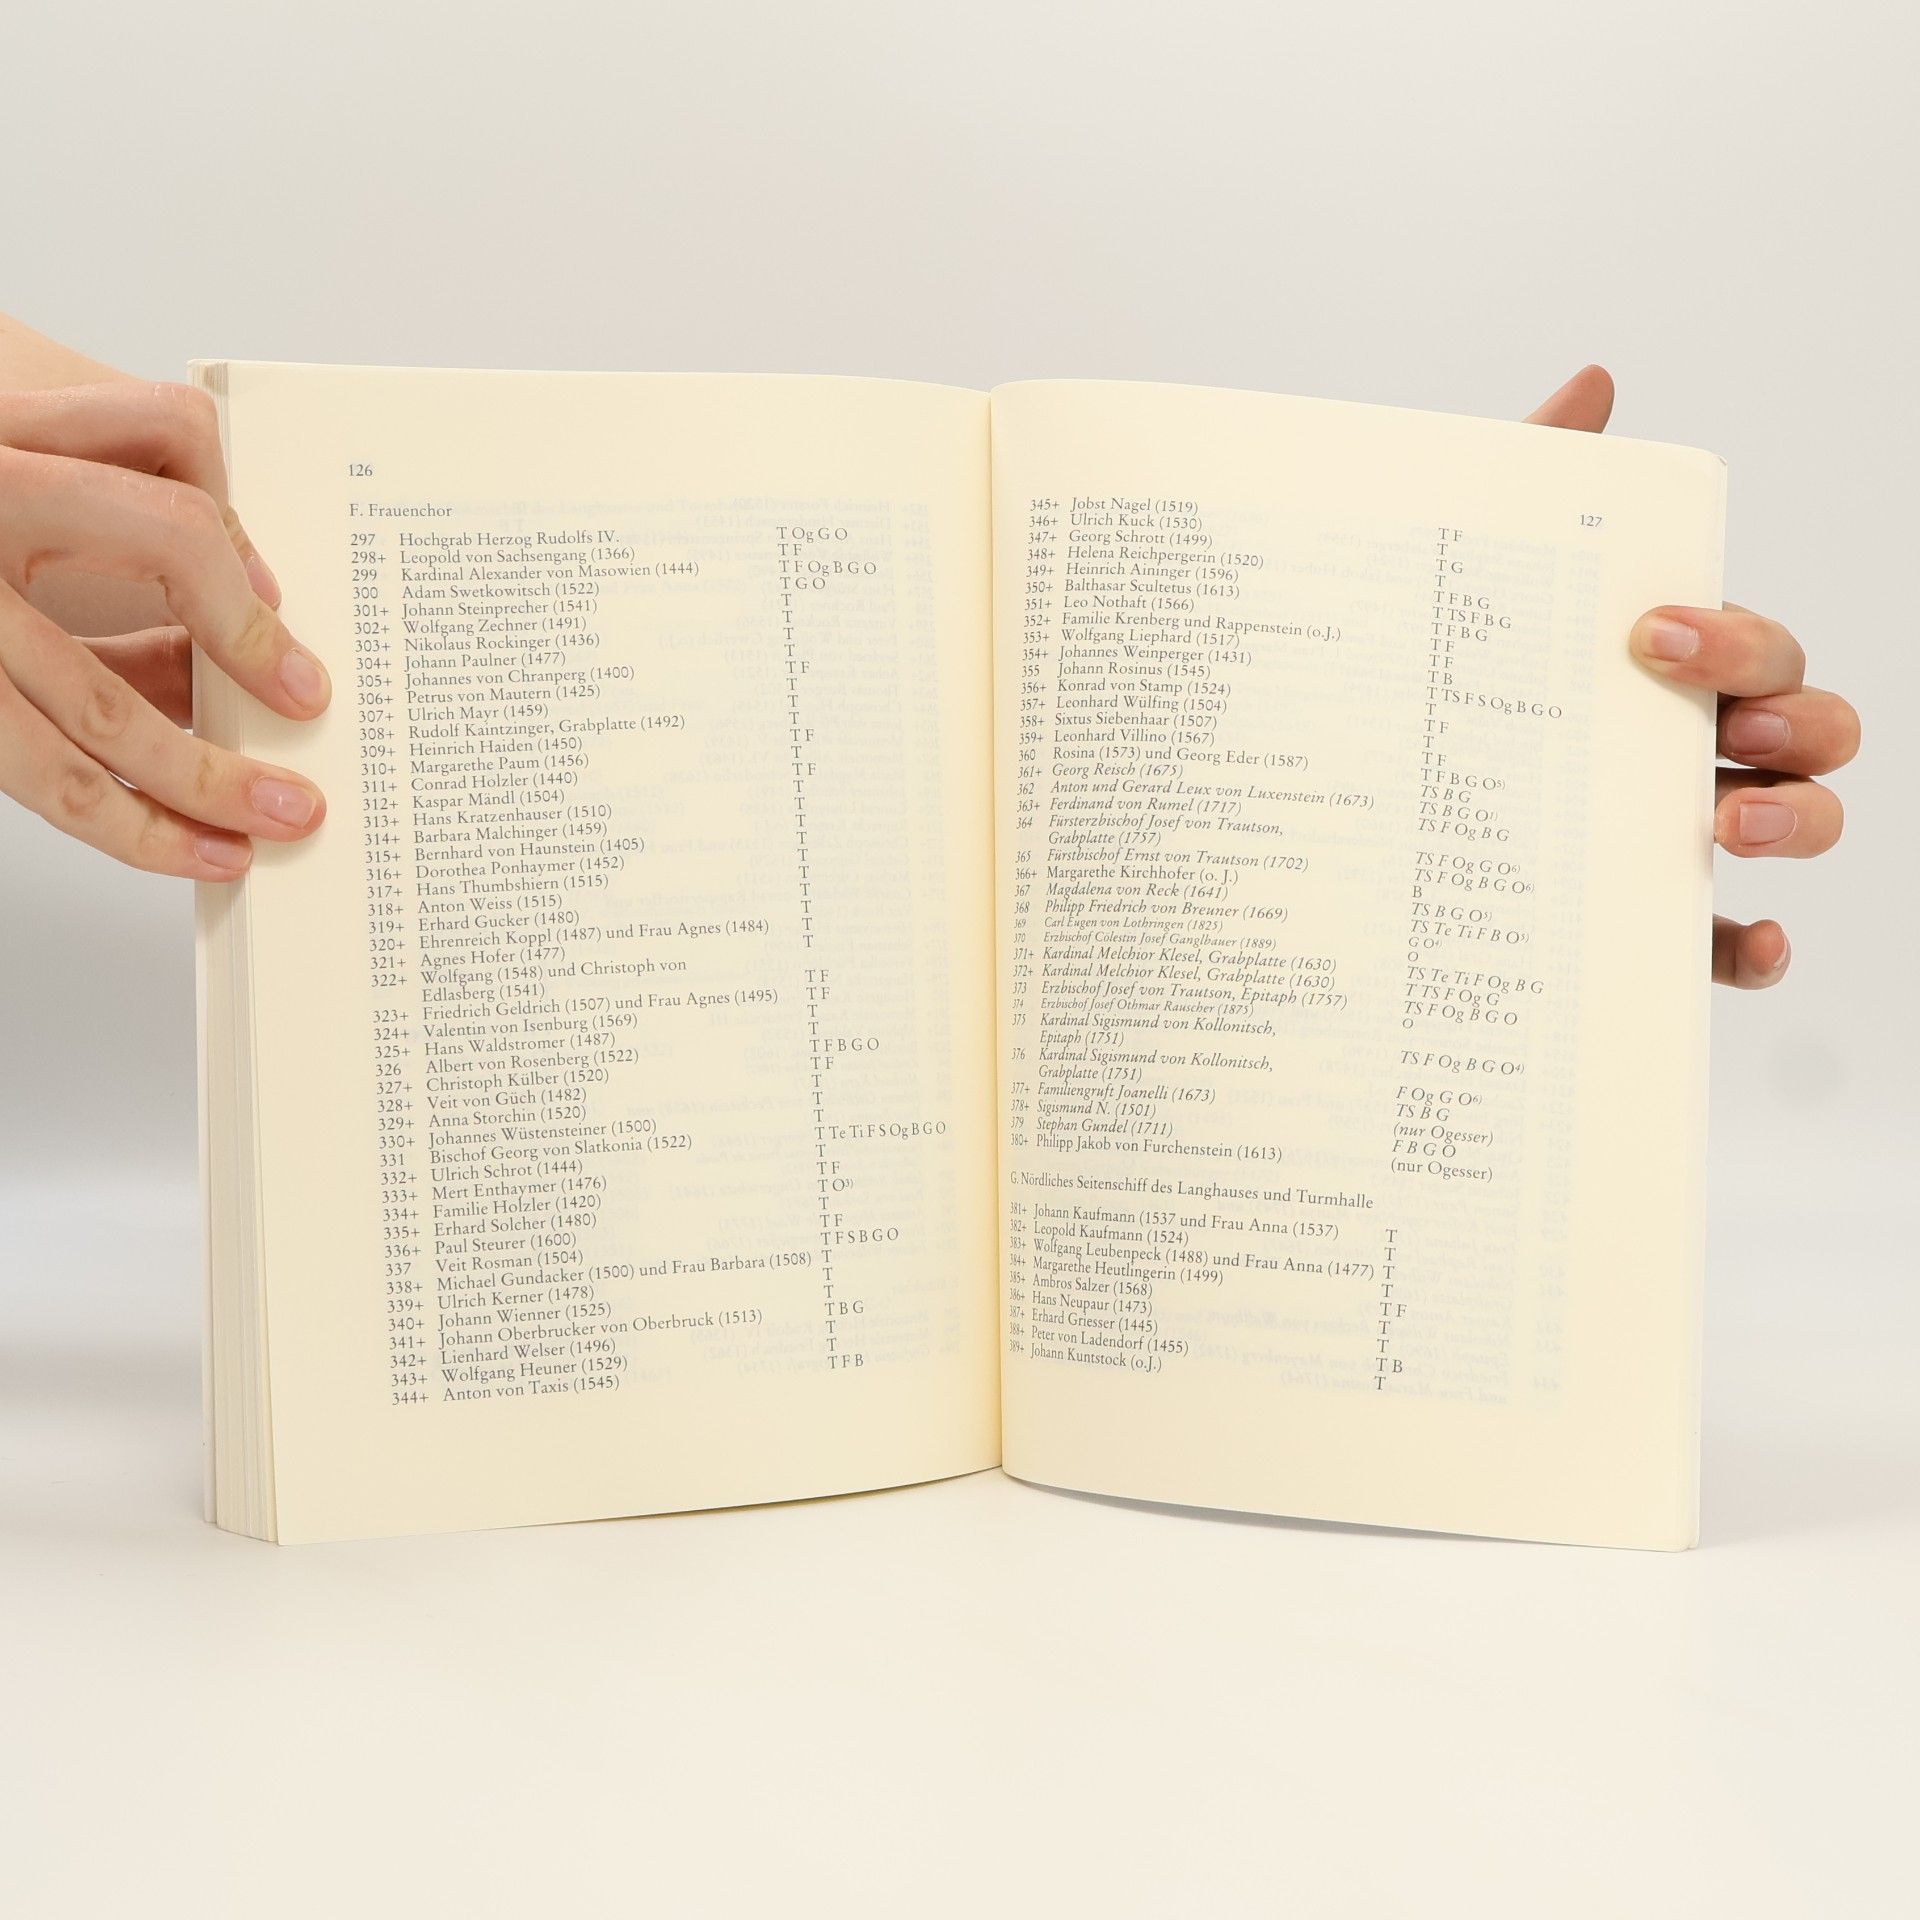 126
F. Frauenchor
297 Hochgrab Herzog Rudolfs IV. T Og G O
298+ Leopold von Sachsengang (1366) T F
299 Kardinal Alexander von Masowien (1444) T F Og B G O
300 Adam Swetkowitsch (1522) T G O
301+ Johann Steinprecher (1541) T
302+ Wolfgang Zechner (1491) T
303+ Nikolaus Rockinger (1436) T
304+ Johann Paulner (1477) T
305+ Johannes von Chranperg (1400) T F
306+ Petrus von Mautern (1425) T
307+ Ulrich Mayr (1459) T
308+ Rudolf Kaintzinger, Grabplatte (1492) T
309+ Heinrich Haiden (1450) T F
310+ Margarethe Paum (1456) T
311+ Conrad Holzler (1440) T F
312+ Kaspar Mändl (1504) T
313+ Hans Kratzenhauser (1510) T
314+ Barbara Malchinger (1459) T
315+ Bernhard von Haunstein (1405) T
316+ Dorothea Ponhaymer (1452) T
317+ Hans Thumbshiern (1515) T
318+ Anton Weiss (1515) T
319+ Erhard Gucker (1480) T
320+ Ehrenreich Koppl (1487) und Frau Agnes (1484) T
321+ Agnes Hofer (1477) T
322+ Wolfgang (1548) und Christoph von
Edlasberg (1541) T F
323+ Friedrich Geldrich (1507) und Frau Agnes (1495) T F
324+ Valentin von Isenburg (1569) T
325+ Hans Waldstromer (1487) T
326 Albert von Rosenberg (1522) T F B G O
327+ Christoph Külber (1520) T F
328+ Veit von Güch (1482) T
329+ Anna Storchin (1520) T
330+ Johannes Wüstensteiner (1500) T
331 Bischof Georg von Slatkonia (1522) T Te Ti F S Og B G O
332+ Ulrich Schrot (1444) T
333+ Mert Enthaymer (1476) T F
334+ Familie Holzler (1420) T O3)
335+ Erhard Solcher (1480) T
336+ Paul Steurer (1600) T F
337 Veit Rosman (1504) T F S B G O
338+ Michael Gundacker (1500) und Frau Barbara (1508) T
339+ Ulrich Kerner (1478) T
340+ Johann Wienner (1525) T
341+ Johann Oberbrucker von Oberbruck (1513) T B G
342+ Lienhard Welser (1496) T
343+ Wolfgang Heuner (1529) T
344+ Anton von Taxis (1545) T F B
127
345+ Jobst Nagel (1519) T F
346+ Ulrich Kuck (1530) T
347+ Georg Schrott (1499) T G
348+ Helena Reichpergerin (1520) T
349+ Heinrich Aininger (1596) T F B G
350+ Balthasar Scultetus (1613) T TS F B G
351+ Leo Nothaft (1566) T F B G
352+ Familie Krenberg und Rappenstein (o.J.) T F
353+ Wolfgang Liephard (1517) T F
354+ Johannes Weinperger (1431) T B
355 Johann Rosinus (1545) T TS F S Og B G O
356+ Konrad von Stamp (1524) T
357+ Leonhard Wülfing (1504) T F
358+ Sixtus Siebenhaar (1507) T
359+ Leonhard Villino (1567) T F
360 Rosina (1573) und Georg Eder (1587) T F B G O5)
361+ Georg Reisch (1675) TS B G
362 Anton und Gerard Leux von Luxenstein (1673) TS B G O1)
363+ Ferdinand von Rumel (1717) TS F Og B G
364 Fürsterzbischof Josef von Trautson,
Grabplatte (1757) TS F Og G O6)
365 Fürstbischof Ernst von Trautson (1702) TS F Og B G O6)
366+ Margarethe Kirchhofer (o. J.) B
367 Magdalena von Reck (1641) TS B G O5)
368 Philipp Friedrich von Breuner (1669) TS Te Ti F B O5)
369 Carl Eugen von Lothringen (1825) G O4)
370 Erzbischof Cölestin Josef Ganglbauer (1889) O
371+ Kardinal Melchior Klesel, Grabplatte (1630) TS Te Ti F Og B G
372+ Kardinal Melchior Klesel, Grabplatte (1630) T TS F Og G
373 Erzbischof Josef von Trautson, Epitaph (1757) TS F Og B G O
374 Erzbischof Josef Othmar Rauscher (1875) O
375 Kardinal Sigismund von Kollonitsch,
Epitaph (1751) TS F Og B G O4)
376 Kardinal Sigismund von Kollonitsch,
Grabplatte (1751) F Og G O6)
377+ Familiengruft Joanelli (1673) TS B G
378+ Sigismund N. (1501) (nur Ogesser)
379 Stephan Gundel (1711) F B G O
380+ Philipp Jakob von Furchenstein (1613) (nur Ogesser)
G. Nördliches Seitenschiff des Langhauses und Turmhalle
381+ Johann Kaufmann (1537 und Frau Anna (1537) T
382+ Leopold Kaufmann (1524) T
383+ Wolfgang Leubenpeck (1488) und Frau Anna (1477) T
384+ Margarethe Heutlingerin (1499) T
385+ Ambros Salzer (1568) T F
386+ Hans Neupaur (1473) T
387+ Erhard Griesser (1445) T
388+ Peter von Ladendorf (1455) T B
389+ Johann Kuntstock (o.J.) T